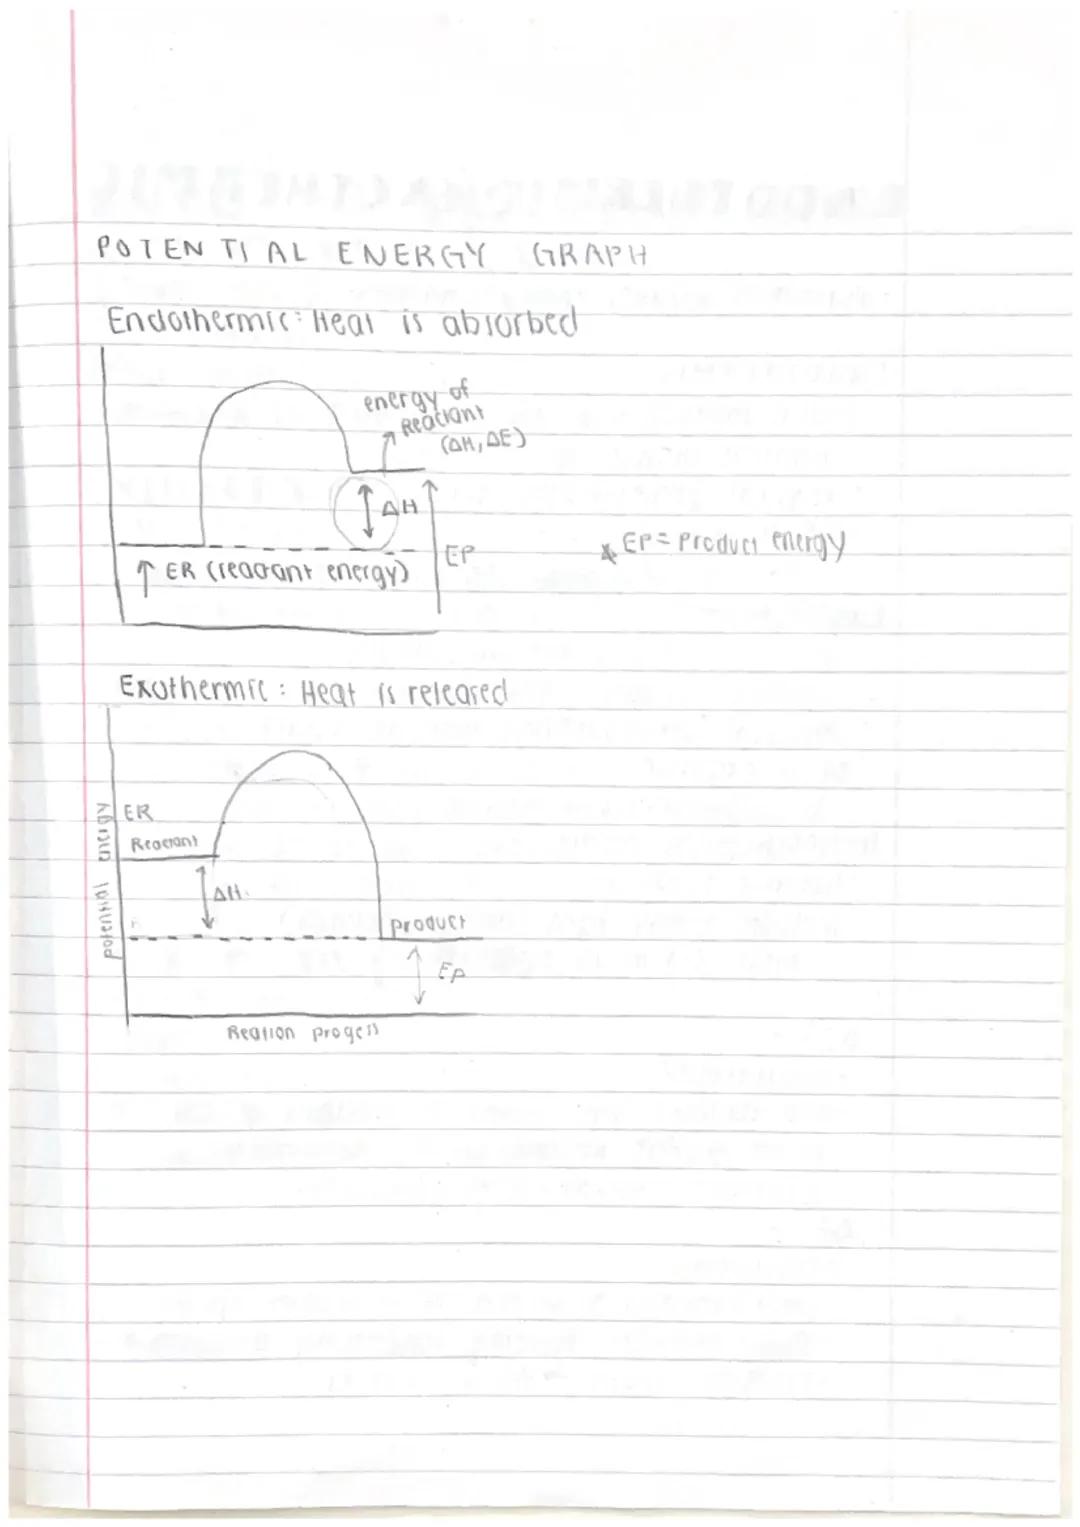 POTENTIAL ENERGY GRAPH
Endothermic: Heat is absorbed
energy of
Reactant
(ΔH, ΔE)
ΔH
EP
↑ ER (reactant energy)
* EP = Product energy
Exothermic: Heat is released
potential energy
ER
Reactant
ΔH
product
Ep
Reation progess